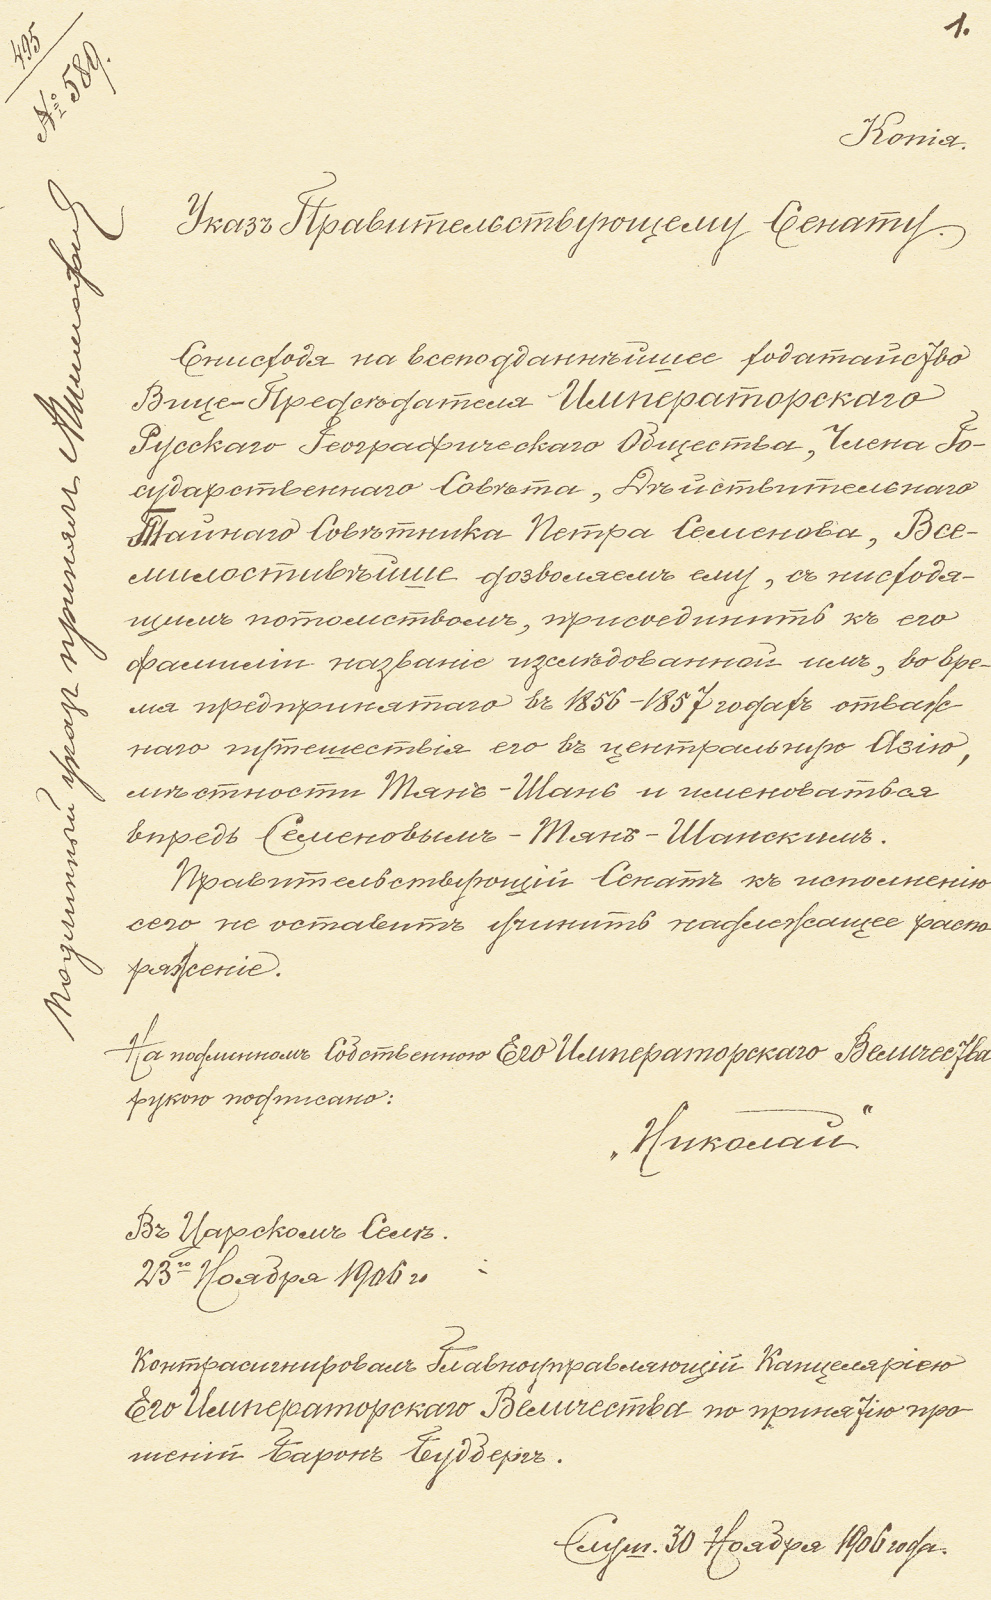 1.
495
№ 589.
Копія.
Указъ Правительствующему Сенату.
Снисходя на всеподданнѣйшее ходатайство
Вице-Предсѣдателя Императорскаго
Русскаго Географическаго Общества, Члена Го-
сударственнаго Совѣта, Дѣйствительнаго
Тайнаго Совѣтника Петра Семенова, Все-
милостивѣйше дозволяемъ ему, съ нисходя-
щимъ потомствомъ, присоединить къ его
фамиліи названіе изслѣдованной имъ, во вре-
мя предпринятаго въ 1856-1857 годахъ отваж
наго путешествія его въ центральную Азію,
мѣстности Тянь-Шань и именоваться
впредь Семеновымъ-Тянъ-Шанскимъ.
Правительствующій Сенатъ къ исполненію
сего не оставитъ учинить надлежащее распо
ряженіе.
На подлинномъ Собственною Его Императорскаго Величества
рукою подписано:
„Николай"
Въ Царскомъ Селѣ.
23го Ноября 1906 го
Контрасигнировалъ Главноуправляющій Канцеляріею
Его Императорскаго Величества по принятію про
шеній Баронъ Будбергъ.
Слуш. 30 Ноября 1906 года.
Подлинный указъ принялъ